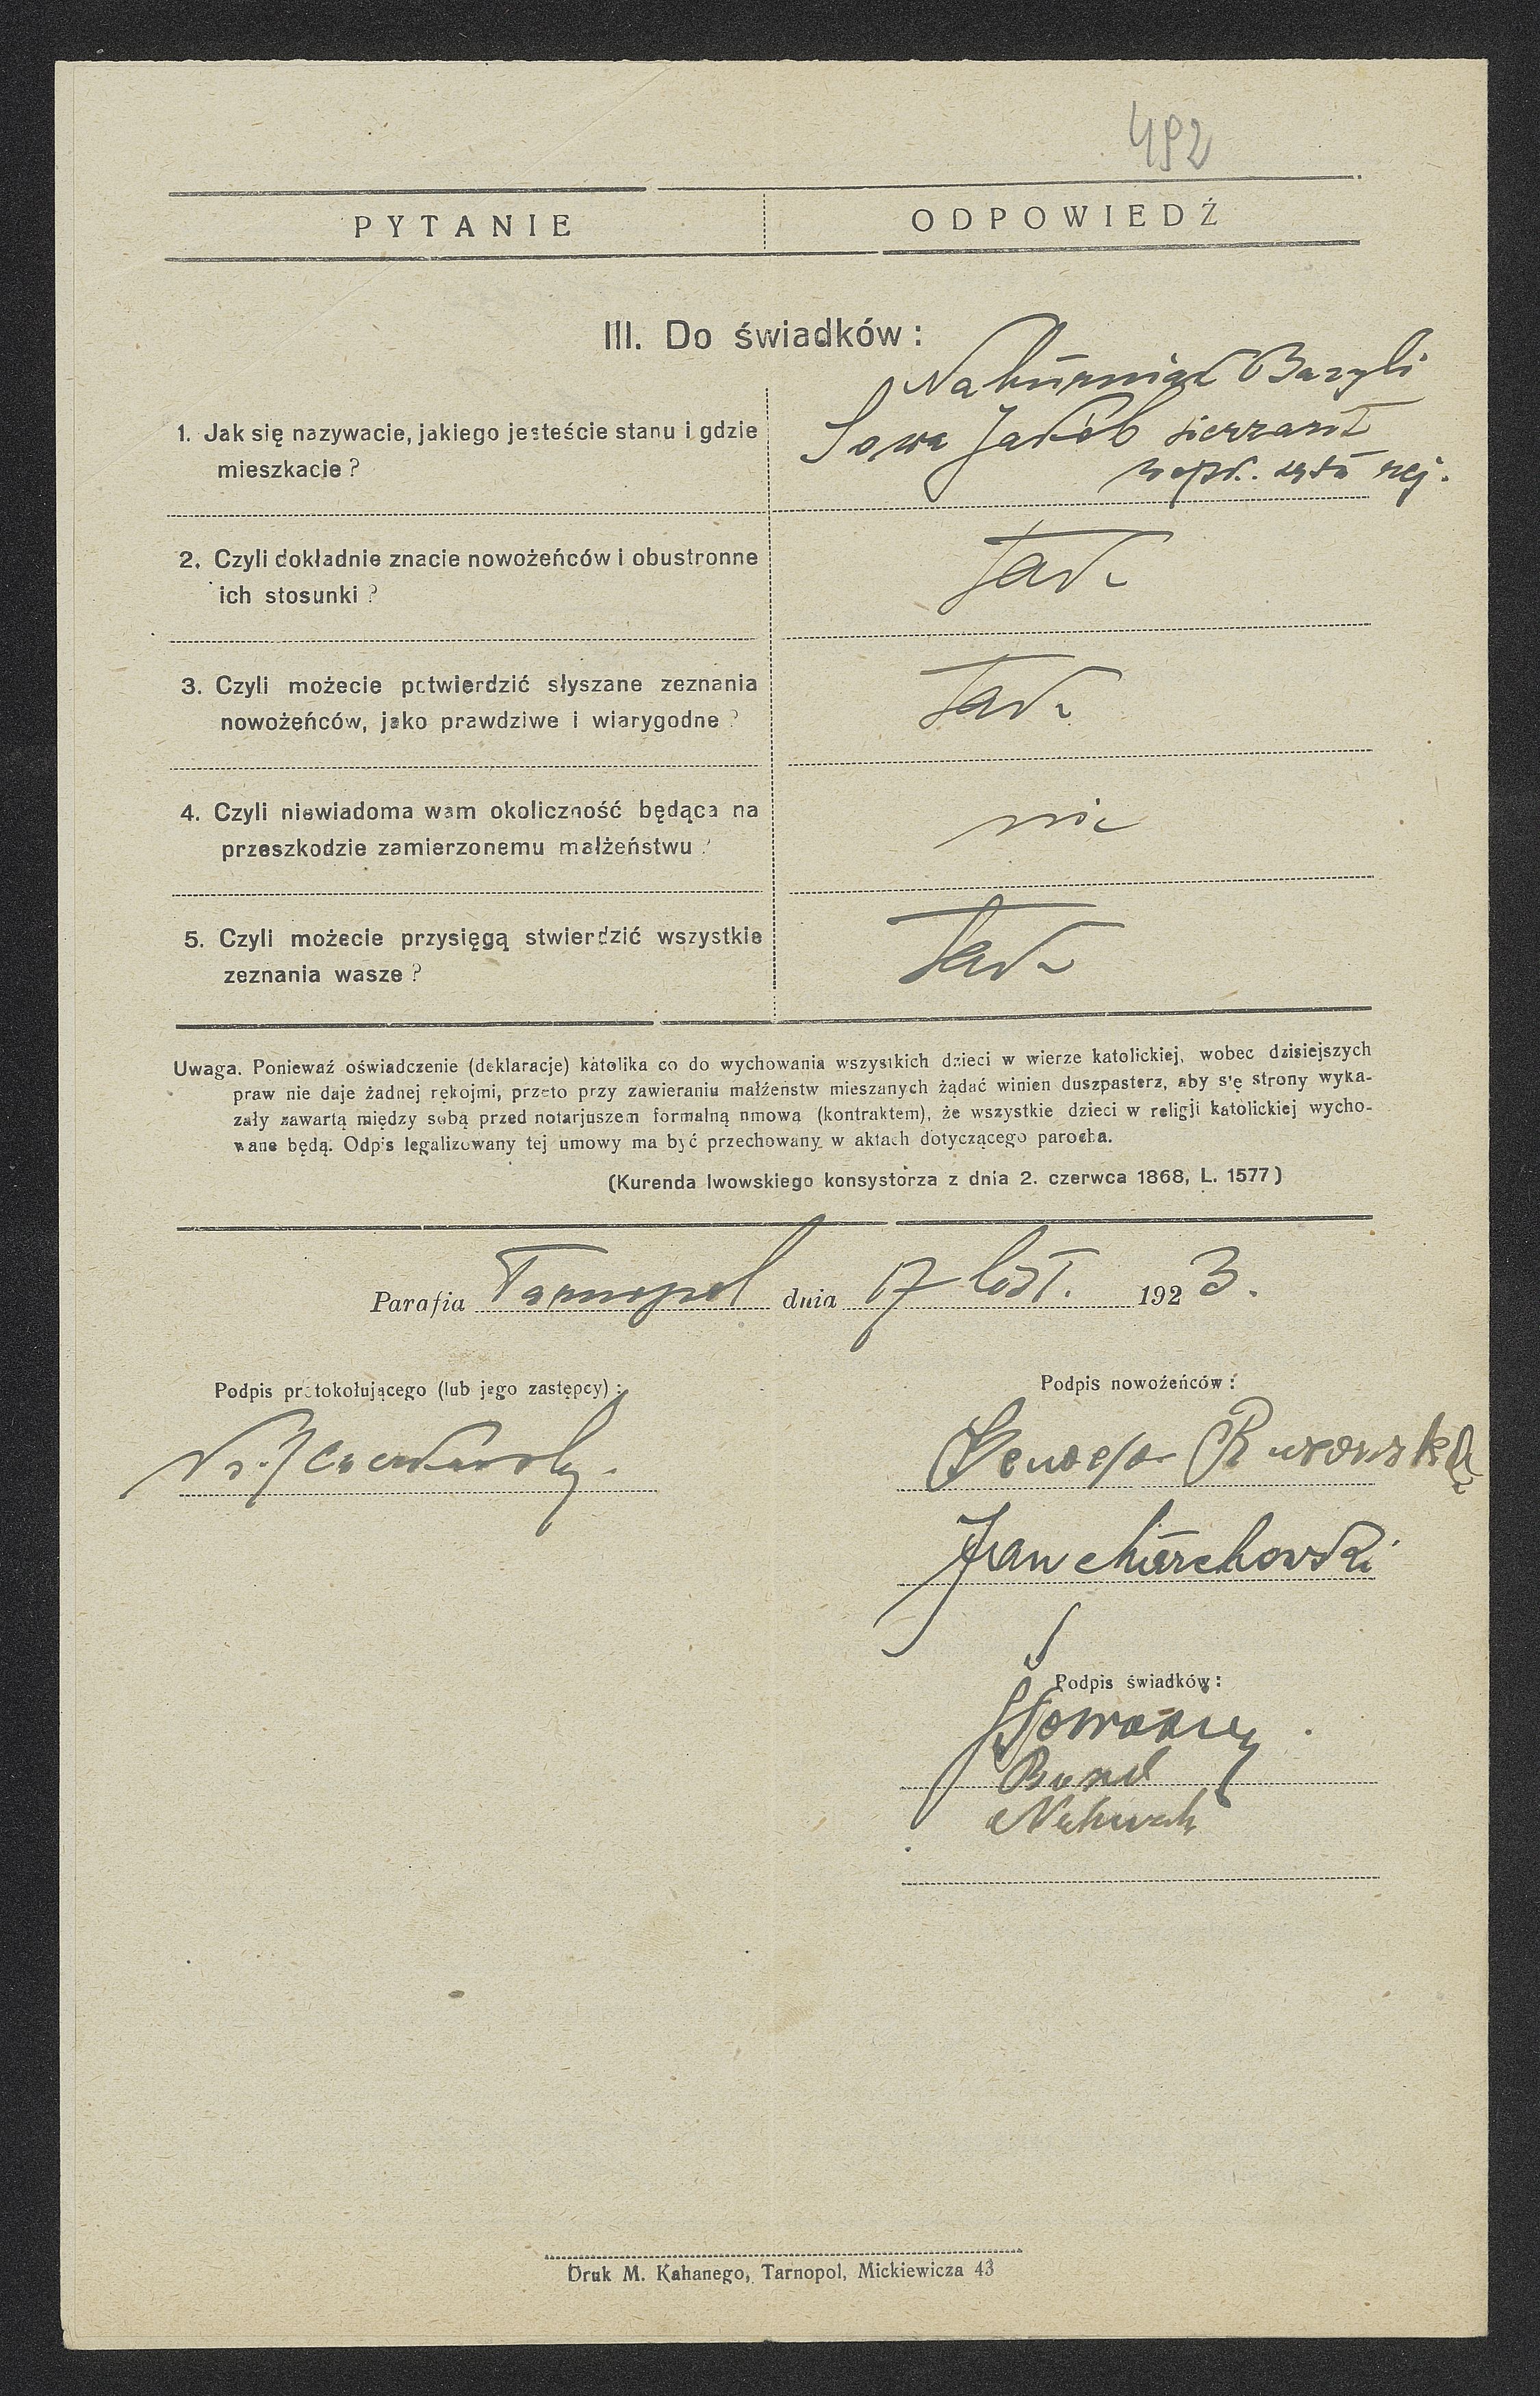 492
PYTANIE
ODPOWIEDŹ
III. Do świadków:
Bazyli
1. Jak się nazywacie, jakiego jesteście stanu i gdzie
mieszkacie?
Sowa Jakób sierżant
2. Czyli dokładnie znacie nowożeńców i obustronne
ich stosunki?
Tak
3. Czyli możecie potwierdzić słyszane zeznania
nowożeńców, jako prawdziwe i wiarygodne?
Tak
4. Czyli niewiadoma wam okoliczność będąca na
przeszkodzie zamierzonemu małżeństwu?
nie
5. Czyli możecie przysięgą stwierdzić wszystkie
zeznania wasze?
Tak
Uwaga. Ponieważ oświadczenie (deklaracje) katolika co do wychowania wszystkich dzieci w wierze katolickiej, wobec dzisiejszych
praw nie daje żadnej rękojmi, przeto przy zawieraniu małżeństw mieszanych żądać winien duszpasterz, aby się strony wyka-
zały zawartą między sobą przed notarjuszem formalną nmowa (kontraktem), że wszystkie dzieci w religji katolickiej wycho-
wane będą. Odpis legalizowany tej umowy ma być przechowany w aktach dotyczącego parocha.
(Kurenda lwowskiego konsystorza z dnia 2. czerwca 1868, L. 1577)
Parafia Tarnopol dnia 17 list. 1923.
Podpis protokołującego (lub jego zastępcy):
Podpis nowożeńców:
Jan
Podpis świadków:
Druk M. Kahanego, Tarnopol, Mickiewicza 43